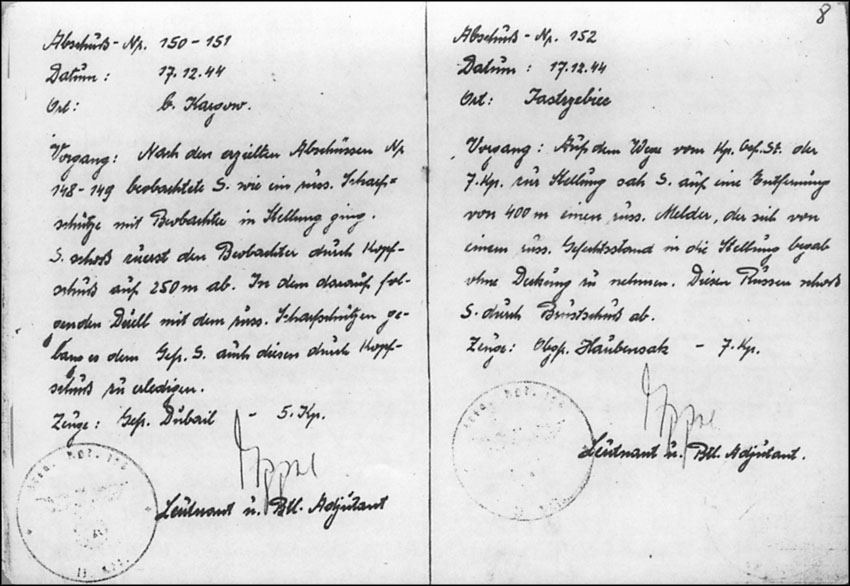 8
Abschuß-Nr. 150-151
Datum: 17.12.44
Ort: b. Kargow.
Vorgang: Nach den erzielten Abschüssen Nr.
148-149 beobachtete S. wie ein russ. Scharf=
schütze mit Beobachter in Stellung ging.
S. schoß zuerst den Beobachter durch Kopf-
schuß auf 250 m ab. In dem darauf fol-
genden Duell mit dem russ. Scharfschützen ge-
lang es dem Gefr. S. auch diesen durch Kopf-
schuß zu erledigen.
Zeuge: Gefr. Dubail - 5. Kp.
Leutnant u. Btl. Adjutant
Abschuß-Nr. 152
Datum: 17.12.44
Ort: Jastrzebiec
Vorgang: Auf dem Wege vom Kp. Gef. St. der
7. Kp. zur Stellung sah S. auf eine Entfernung
von 400 m einen russ. Melder, der sich von
einem russ. Gefechtsstand in die Stellung begab
ohne Deckung zu nehmen. Diesen Russen schoß
S. durch Brustschuß ab.
Zeuge: Ogfr. Haubensak - 7. Kp.
Leutnant u. Btl. Adjutant.